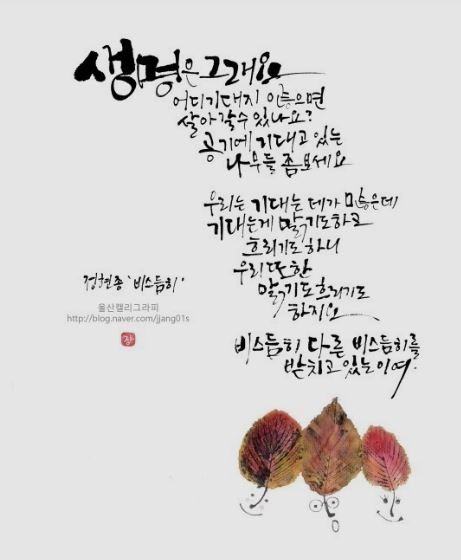 생명은 그래요
어디 기대지 않으면
살아갈 수 있나요?
공기에 기대고 있는
나무들 좀 보세요
우리는 기대는 데가 많은데
기대는게 맑기도하고
흐리기도하니
우리 또한
맑기도흐리기도
하지요
비스듬히 다른 비스듬히를
받치고 있는이여.
정현종 '비스듬히'
울산캘리그라피
http://blog.naver.com/jjang01s
장